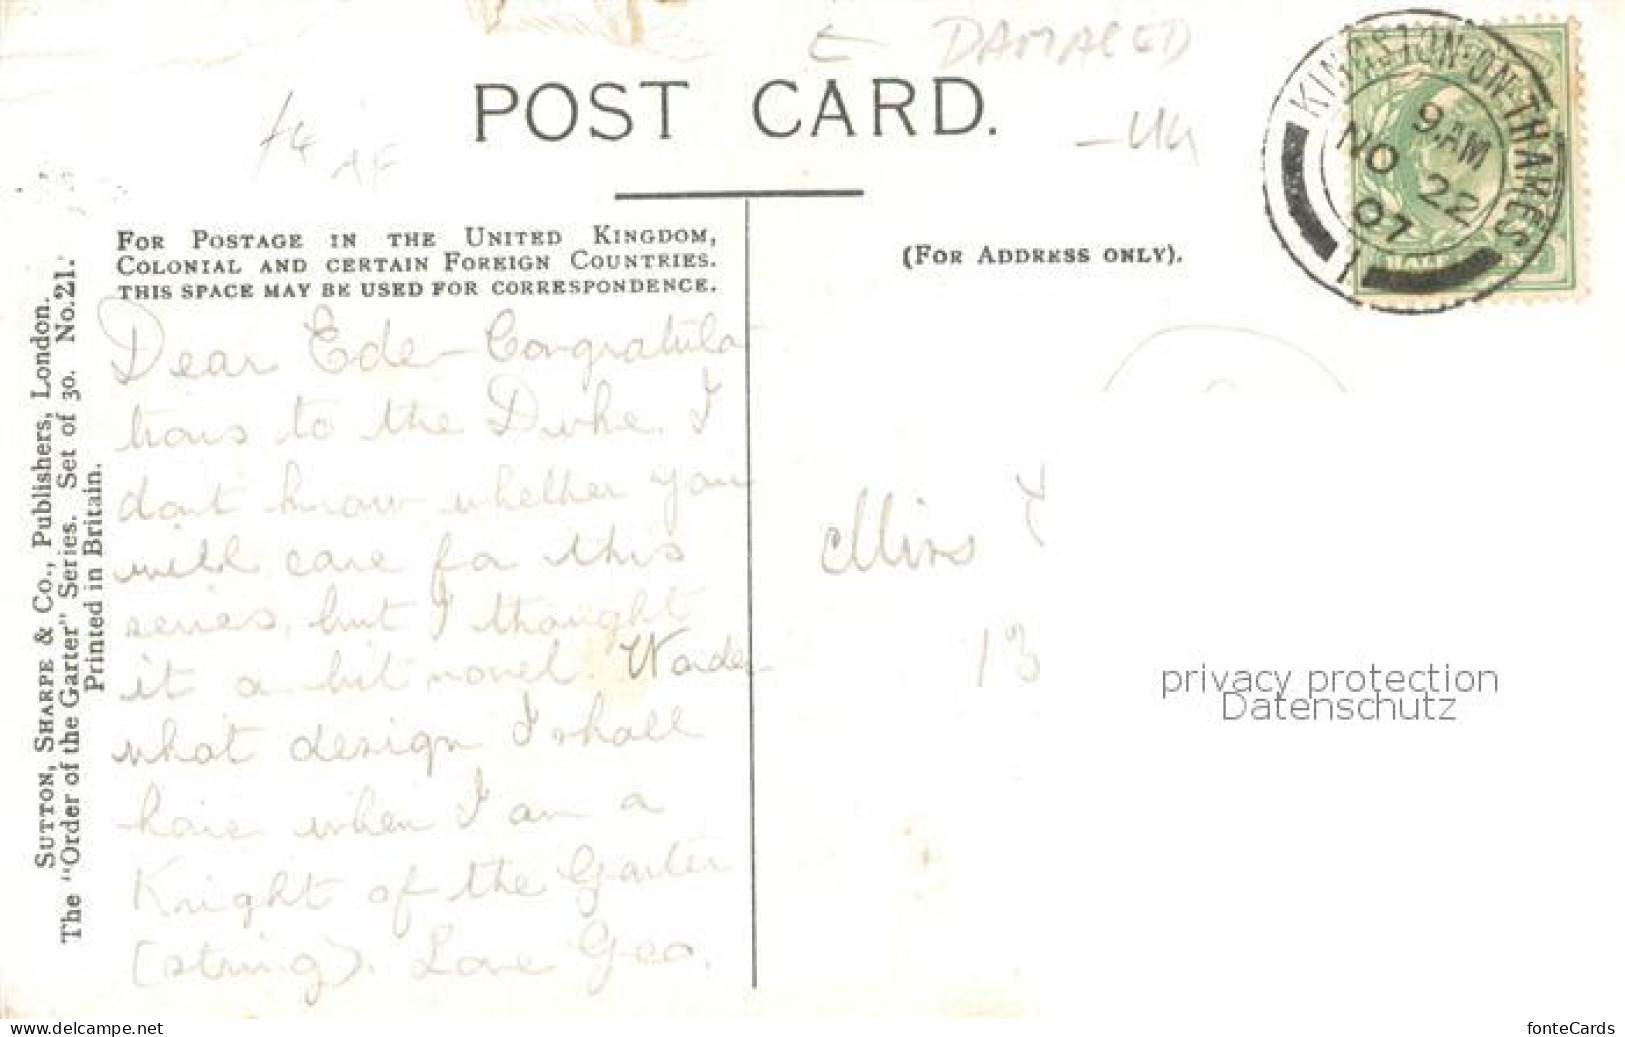 DAMAGED
POST CARD.
KINGSTON-ON-THAMES
9. AM
NO 22
07
1
FOR POSTAGE IN THE UNITED KINGDOM,
COLONIAL AND CERTAIN FOREIGN COUNTRIES.
THIS SPACE MAY BE USED FOR CORRESPONDENCE.
(FOR ADDRESS ONLY).
SUTTON, SHARPE & CO., Publishers, London.
The "Order of the Garter" Series. Set of 30. No. 21.
Printed in Britain.
Dear Ede - Congratula
tions to the Duke. I
dont know whether you
will care for this
series, but I thought
it a bit novel. Wonder
what design I shall
have when I am a
Knight of the Garter
(string). Love Geo.
Miss
13
privacy protection
Datenschutz
www.delcampe.net
fonteCards